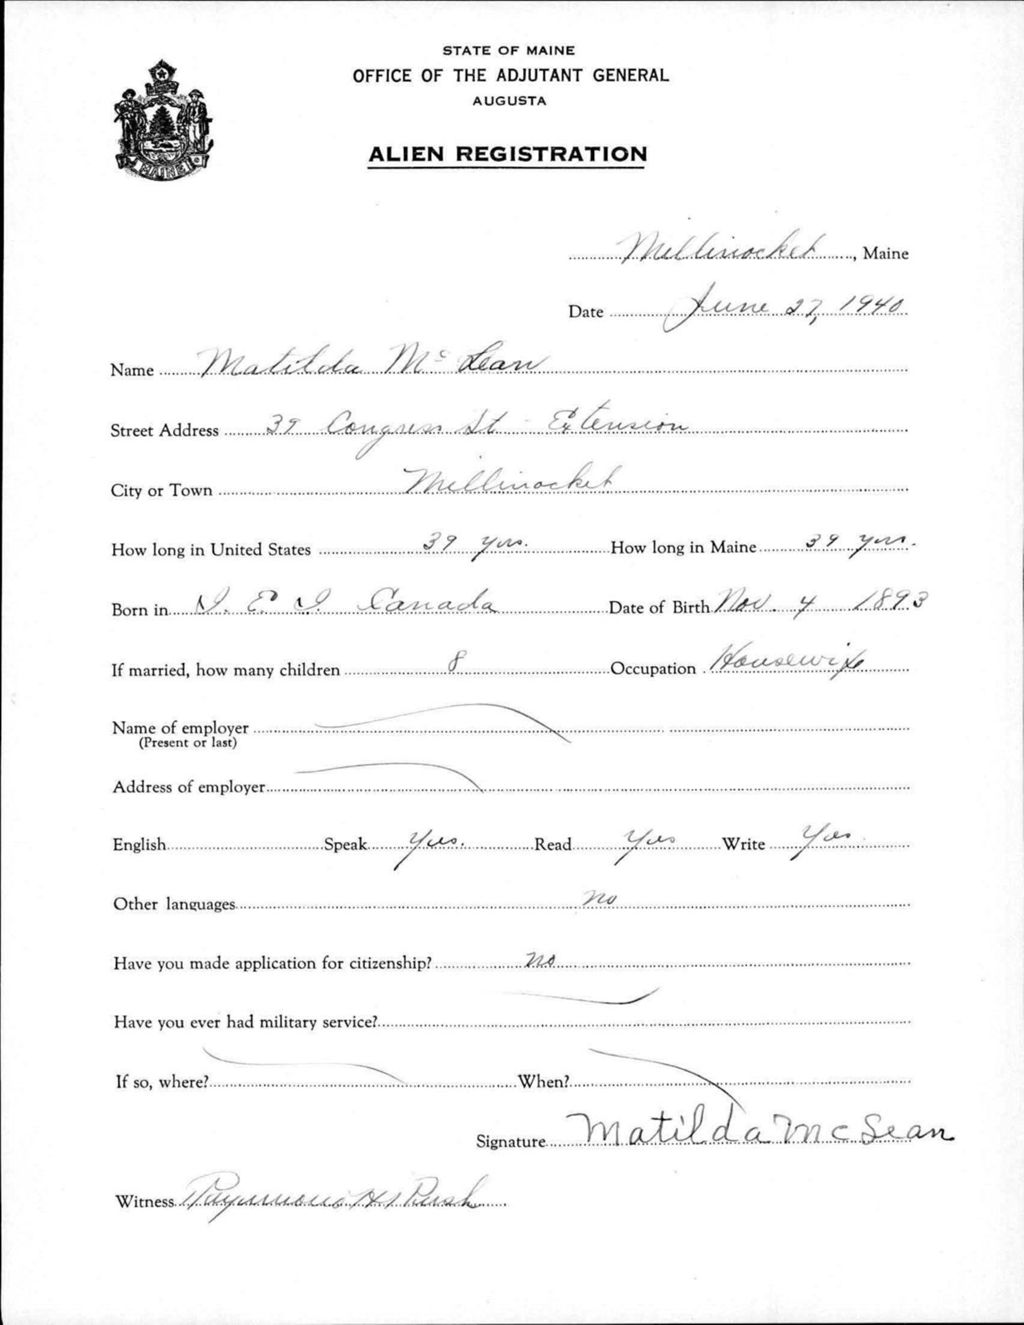 STATE OF MAINE
OFFICE OF THE ADJUTANT GENERAL
AUGUSTA
ALIEN REGISTRATION
MAINE
Millinocket, Maine
Date June 27, 1940
Name Matilda Mc Lean
Street Address 39 Congress St - Extension
City or Town Millinocket
How long in United States 39 yrs. How long in Maine 39 yrs.
Born in P. E. I. Canada Date of Birth Nov. 4 1893
If married, how many children 8 Occupation Housewife
Name of employer
(Present or last)
Address of employer
English Speak Yes. Read Yes Write Yes
Other languages no
Have you made application for citizenship? no
Have you ever had military service?
If so, where? When?
Signature Matilda Mc Lean
Witness Raymond H Rush